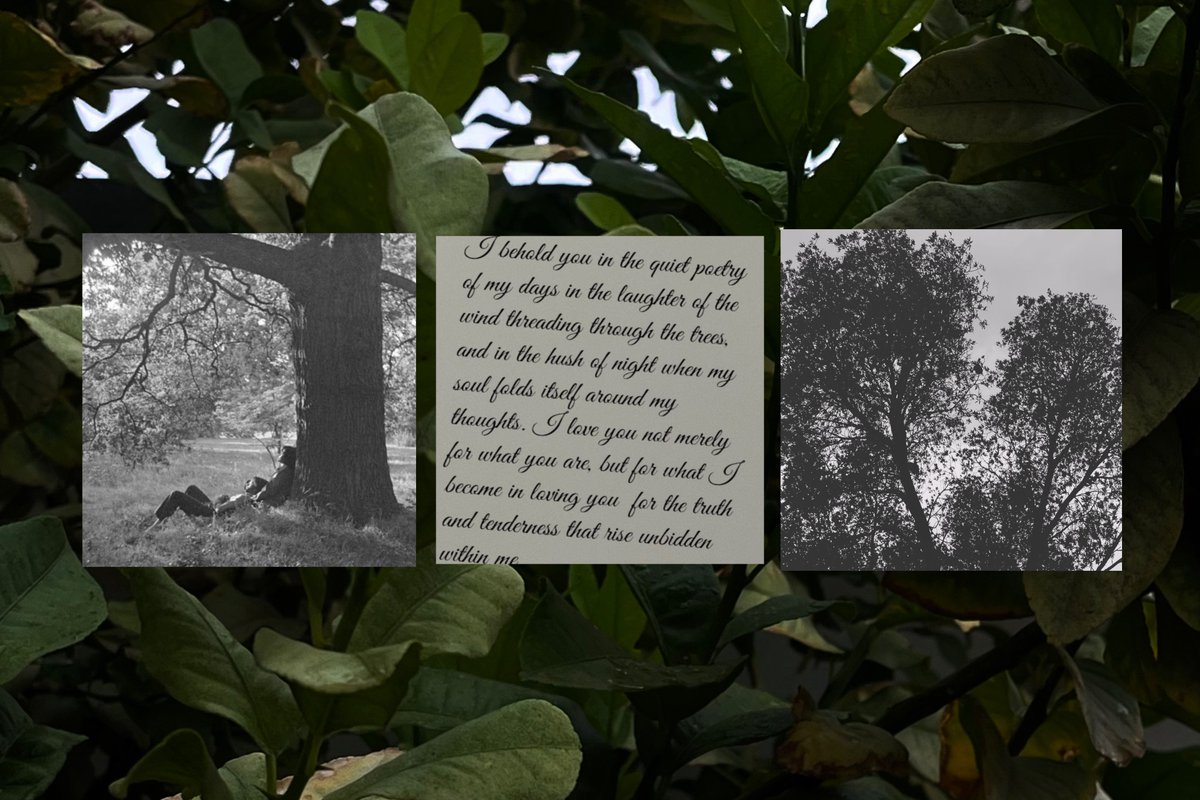 I behold you in the quiet poetry
of my days in the laughter of the
wind threading through the trees,
and in the hush of night when my
soul folds itself around my
thoughts. I love you not merely
for what you are, but for what I
become in loving you for the truth
and tenderness that rise unbidden
within me